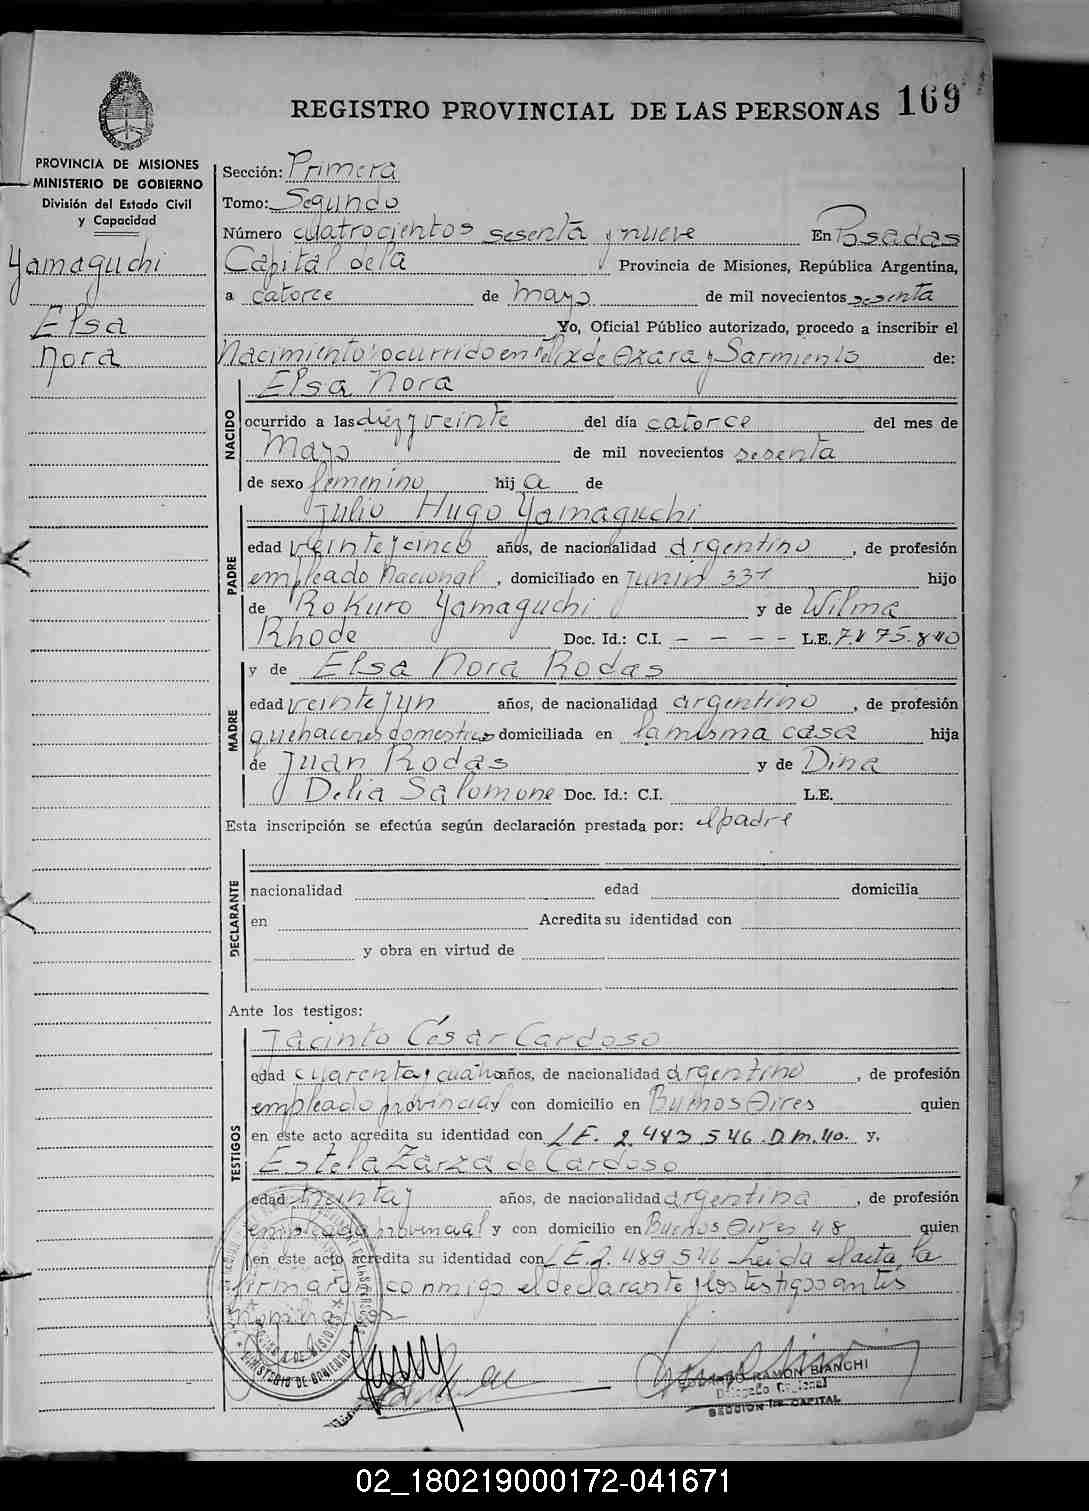 REGISTRO PROVINCIAL DE LAS PERSONAS 169
PROVINCIA DE MISIONES
MINISTERIO DE GOBIERNO
División del Estado Civil
y Capacidad
Yamaguchi
Elsa
Nora
Sección: Primera
Tomo: Segundo
Número cuatrocientos sesenta y nueve En Posadas
Capital de la Provincia de Misiones, República Argentina,
a catorce de mayo de mil novecientos sesenta
Yo, Oficial Público autorizado, procedo a inscribir el
Nacimiento ocurrido en Felix de Azara y Sarmiento de:
Elsa Nora
NACIDO
ocurrido a las diez y veinte del día catorce del mes de
Mayo de mil novecientos sesenta
de sexo femenino hij a de
Julio Hugo Yamaguchi
PADRE
edad veinte y cinco años, de nacionalidad argentino, de profesión
empleado Nacional, domiciliado en Junin 331 hijo
de Rokuro Yamaguchi y de Wilma
Rhode Doc. Id.: C.I. - - - - L.E.
y de Elsa Nora Rodas
MADRE
edad veinte y un años, de nacionalidad argentino, de profesión
quehaceres domesticos domiciliada en la misma casa hija
de Juan Rodas y de Dina
Delia Salomone Doc. Id.: C.I. L.E.
Esta inscripción se efectúa según declaración prestada por: el padre
DECLARANTE
nacionalidad edad domicilia
en Acredita su identidad con
y obra en virtud de
Ante los testigos:
Jacinto César Cardoso
TESTIGOS
edad cuarenta y cuatro años, de nacionalidad argentino, de profesión
empleado provincial y con domicilio en Buenos Aires quien
en este acto acredita su identidad con L.E. 2.483.546 D.M.40. y,
Estela Zarza de Cardoso
edad treinta y años, de nacionalidad argentina, de profesión
empleada provincial y con domicilio en Buenos Aires 48 quien
en este acto acredita su identidad con L.E. 2.489.546 Leida el acta, la
firmaron conmigo el declarante y los testigos antes
RAMON BIANCHI
SECCION DE CAPITAL
MINISTERIO DE GOBIERNO
02_180219000172-041671